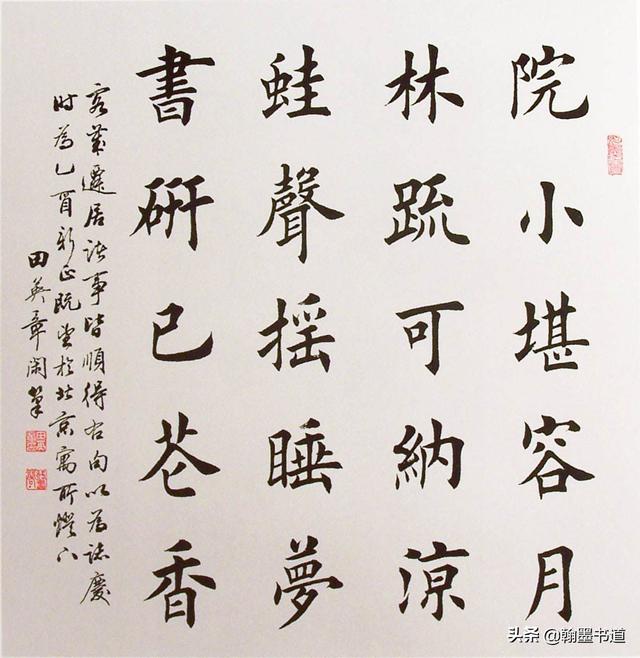 院小堪容月
林疏可納涼
蛙聲摇睡夢
書研已花香
客歲遷居諸事皆順得右句以為誌慶
時為乙酉新正既望於北京寓所燈下
田英章閑筆
头条 @翰墨书道